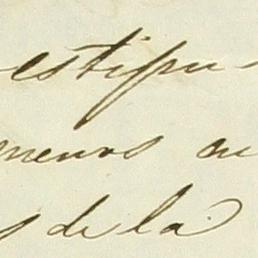 estipu
menos au
de la